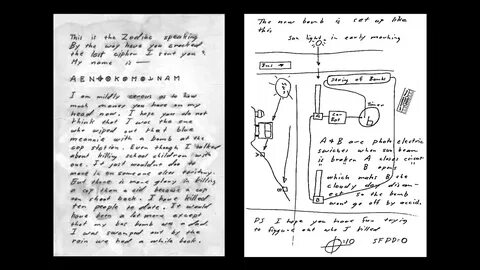 This is the Zodiac speaking
By the way have you cracked
the last cipher I sent you ?
My name is —
I am mildly cerous as to how
much money you have on my
head now. I hope you do not
think that I was the one
who wiped out that blue
meannie with a bomb at the
cop station. Even though I talked
about killing school children with
one. It just wouldnt doo to
move in on someone elses teritory.
But there is more glory in killing
a cop than a cid because a cop
can shoot back. I have killed
ten people to date. It would
have been a lot more except
that my bus bomb was a dud.
I was swamped out by the
rain we had a while back.
The new bomb is set up like
this
Sun light in early morning
Bus →
A
B
A & B are photo electric
switches when sun beam
is broken A closes circut
B opens
which makes B the
cloudy day disconect
so the bomb
wont go off by accid.
PS I hope you have fun trying
to figgure out who I killed
=10 SFPD=0